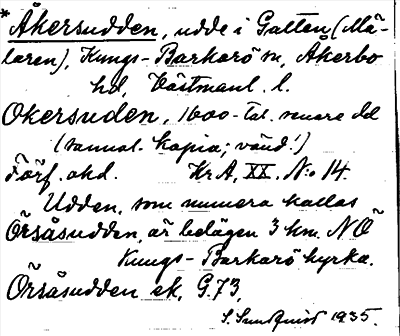 * Åkersudden, udde i Galten (Mä-
laren), Kungs-Barkarö sn, Åkerbo
hd, Västmanl. l.
Okersuden, 1600-tal. senare dd
(samml. kopia; vänd!)
Förf. okd. Kr A, XX. N:o 14.
Udden, som numera kallas
Örsåsudden, är belägen 3 km. NÖ
Kungs-Barkarö kyrka.
Örsåsudden ek, G.73,
S. Sundquist 1935.